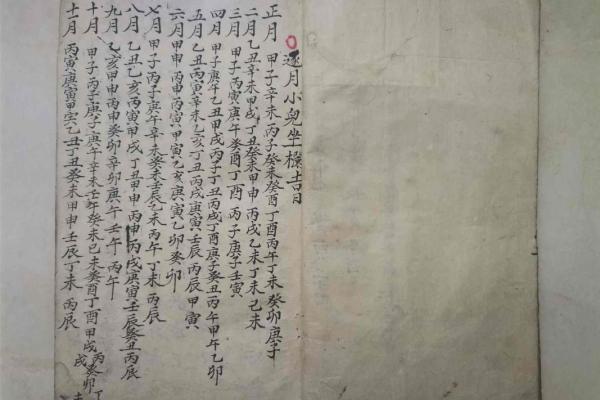 逐月小兒坐欄吉日
正月 甲子辛未丙子癸未癸酉丁酉丙午丁未癸卯庚子
二月 乙丑辛未甲戌丁丑癸未甲申丙戌乙未丁未己未
三月 甲子丙寅庚午癸酉丁酉丙子庚子壬寅
四月 甲子庚午乙丑甲戌丙子丁丑丙戌丁酉庚子癸丑丙午甲午乙卯
五月 乙丑丙寅辛未乙亥丁丑丙戌庚寅壬辰丙辰甲寅
六月 甲申丙申丙寅甲寅乙亥庚寅乙卯癸卯
七月 甲子丙子庚午辛未癸未壬辰乙未丙午丁未丙辰
八月 乙丑乙亥丙寅甲戌丁丑甲申丙申丙戌庚寅壬辰癸丑丙辰
九月 乙亥甲申丙申癸卯辛卯庚午壬午丙午
十月 甲子丙子庚子庚午辛未壬午癸未己未癸酉丁酉甲戌丙戌癸卯
十一月 丙寅庚寅甲寅乙丑丁丑癸未甲申壬辰丁未丙辰